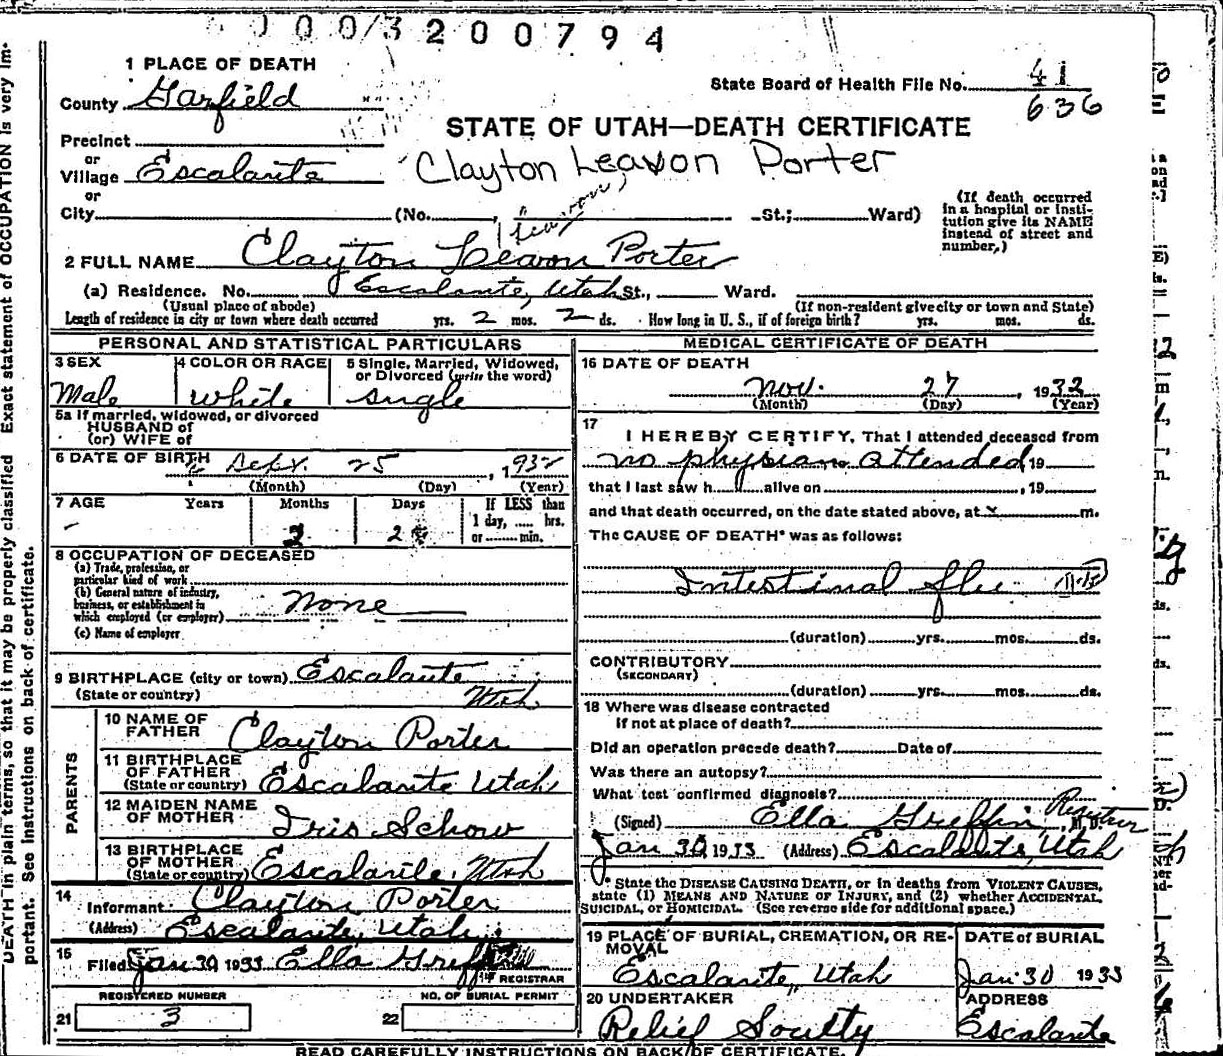 00/3200794
1 PLACE OF DEATH
County Garfield
State Board of Health File No. 41
636
STATE OF UTAH—DEATH CERTIFICATE
Precinct
or
Village Escalante
Clayton Leavon Porter
or
City (No. , St.; Ward)
(If death occurred in a hospital or institution give its NAME instead of street and number,)
2 FULL NAME Clayton Leavon Porter
(a) Residence. No. Escalante, Utah St., Ward.
(Usual place of abode) (If non-resident give city or town and State)
Length of residence in city or town where death occurred yrs. 2 mos. 2 ds. How long in U. S., if of foreign birth? yrs. mos. ds.
PERSONAL AND STATISTICAL PARTICULARS
3 SEX Male
4 COLOR OR RACE white
5 Single, Married, Widowed, or Divorced (write the word) single
5a If married, widowed, or divorced
HUSBAND of
(or) WIFE of
6 DATE OF BIRTH Sept. 25, 1932
(Month) (Day) (Year)
7 AGE Years Months Days If LESS than
1 day, ..... hrs.
or ........ min.
- 2 2
8 OCCUPATION OF DECEASED
(a) Trade, profession, or
particular kind of work
(b) General nature of industry,
business, or establishment in
which employed (or employer) none
(c) Name of employer
9 BIRTHPLACE (city or town) Escalante
(State or country) Utah
PARENTS
10 NAME OF
FATHER Clayton Porter
11 BIRTHPLACE
OF FATHER
(State or country) Escalante Utah
12 MAIDEN NAME
OF MOTHER Iris Schow
13 BIRTHPLACE
OF MOTHER
(State or country) Escalante, Utah
14
Informant Clayton Porter
(Address) Escalante, Utah
15
Filed Jan 30, 1933 Ella Griffin
REGISTRAR
REGISTERED NUMBER NO. OF BURIAL PERMIT
21 3 22
MEDICAL CERTIFICATE OF DEATH
16 DATE OF DEATH
Nov. 27, 1932
(Month) (Day) (Year)
17
I HEREBY CERTIFY, That I attended deceased from
no physian attended 19
that I last saw h alive on , 19
and that death occurred, on the date stated above, at x m.
The CAUSE OF DEATH* was as follows:
Intestinal flu
(duration) yrs. mos. ds.
CONTRIBUTORY
(SECONDARY)
(duration) yrs. mos. ds.
18 Where was disease contracted
if not at place of death?
Did an operation precede death? Date of
Was there an autopsy?
What test confirmed diagnosis?
(Signed) Ella Griffin Registrar M. D.
Jan 30, 1933 (Address) Escalante, Utah
* State the DISEASE CAUSING DEATH, or in deaths from VIOLENT CAUSES,
state (1) MEANS AND NATURE OF INJURY, and (2) whether ACCIDENTAL,
SUICIDAL, or HOMICIDAL. (See reverse side for additional space.)
19 PLACE OF BURIAL, CREMATION, OR RE-
MOVAL
Escalante, Utah
DATE of BURIAL
Jan 30 1933
20 UNDERTAKER
Relief Society
ADDRESS
Escalante
READ CAREFULLY INSTRUCTIONS ON BACK OF CERTIFICATE.
DEATH in plain terms, so that it may be properly classified Exact statement of OCCUPATION is very im-
portant. See instructions on back of certificate.